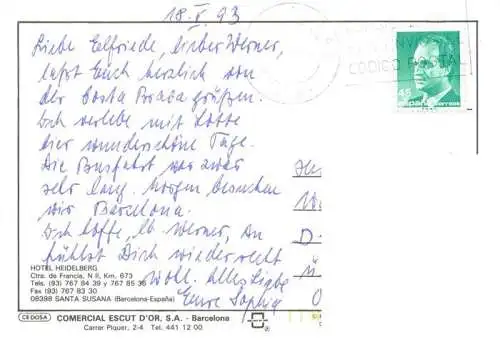 18. V. 93
Liebe Elfriede, lieber Werner,
laßt Euch herzlich von
der Costa Brava grüßen.
Ich verlebe mit Lotte
hier wunderschöne Tage.
Die Busfahrt war zwar
sehr lang. Morgen besuchen
wir Barcelona.
Ich hoffe, lb. Werner, Du
fühlst Dich wieder recht
wohl. Alles Liebe
Eure Sophie
CODIGO POSTAL
45
España correos
HOTEL HEIDELBERG
Ctra. de Francia, N II, Km. 673
Tels. (93) 767 84 39 y 767 85 36
Fax (93) 767 83 30
08398 SANTA SUSANA (Barcelona-España)
CEDOSA COMERCIAL ESCUT D'OR, S.A. - Barcelona
Carrer Piquer, 2-4 Tel. 441 12 00